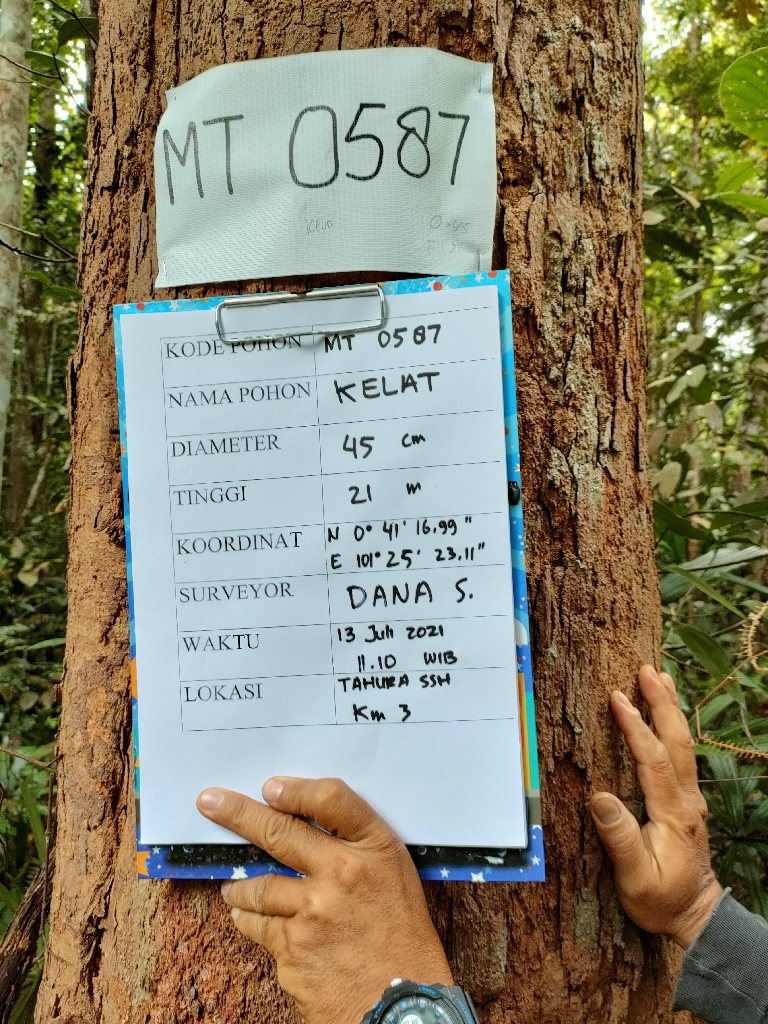 MT 0587
KODE POHON MT 0587
NAMA POHON KELAT
DIAMETER 45 cm
TINGGI 21 m
KOORDINAT N 0° 41' 16.99 "
E 101° 25' 23.11"
SURVEYOR DANA S.
WAKTU 13 Juli 2021
11.10 WIB
LOKASI TAHURA SSH
Km 3